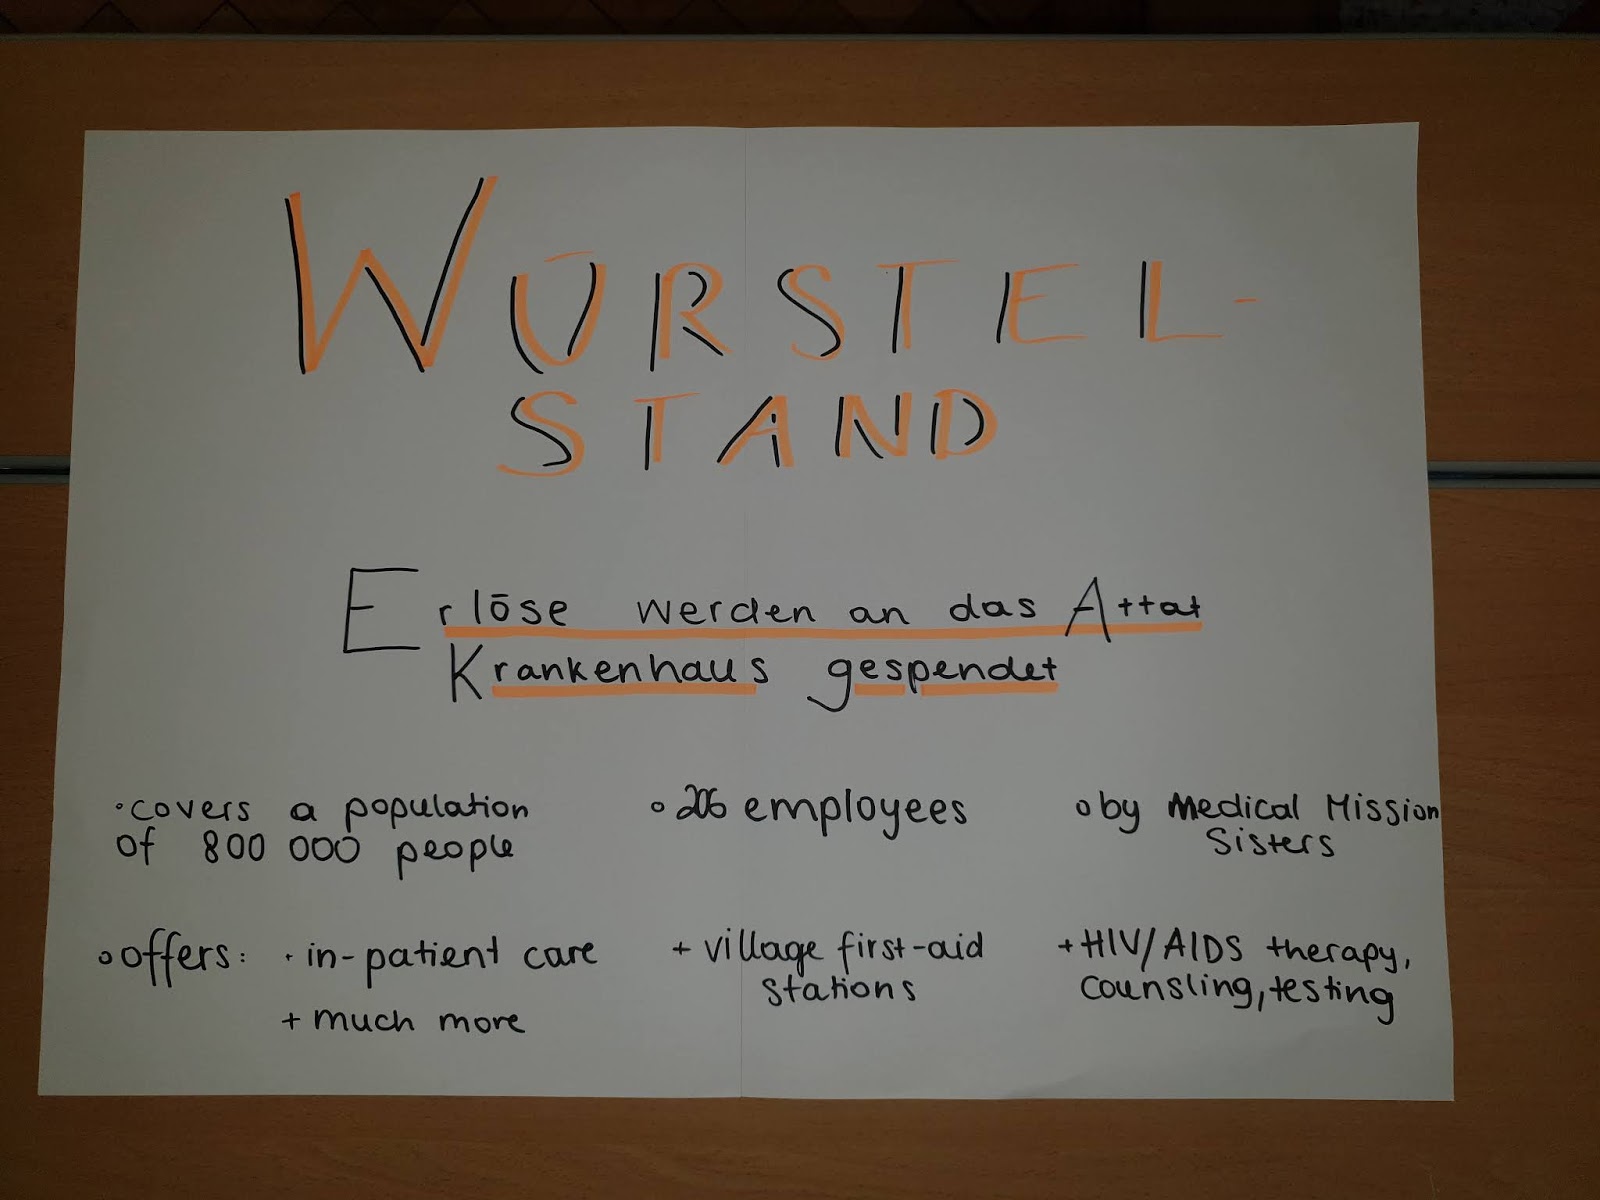 WÜRSTEL-
STAND
Erlöse werden an das Attat
Krankenhaus gespendet
•covers a population
of 800 000 people
∘206 employees
∘by Medical Mission
Sisters
∘offers: · in-patient care
+ much more
+ village first-aid
stations
+HIV/AIDS therapy,
counsling, testing